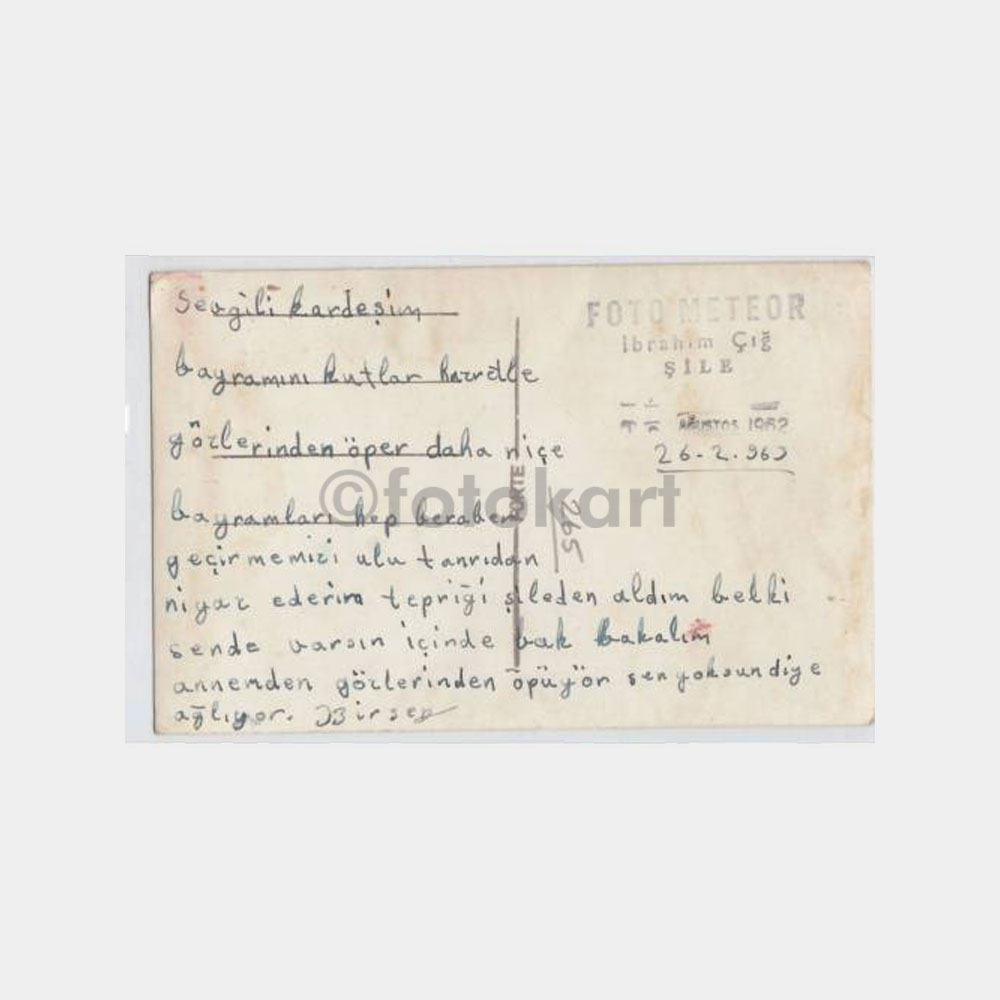 Sevgili kardeşim
bayramını kutlar hasretle
gözlerinden öper daha niçe
bayramları hep beraber
geçirmemizi ulu tanrıdan
niyaz ederim tepriği şileden aldım belki
sende varsın içinde bak bakalım
annemden gözlerinden öpüyör sen yoksun diye
ağlıyor. Birsen
FOTO METEOR
İbrahim Çığ
ŞİLE
AĞUSTOS 1962
26-2-963
265
©fotokart